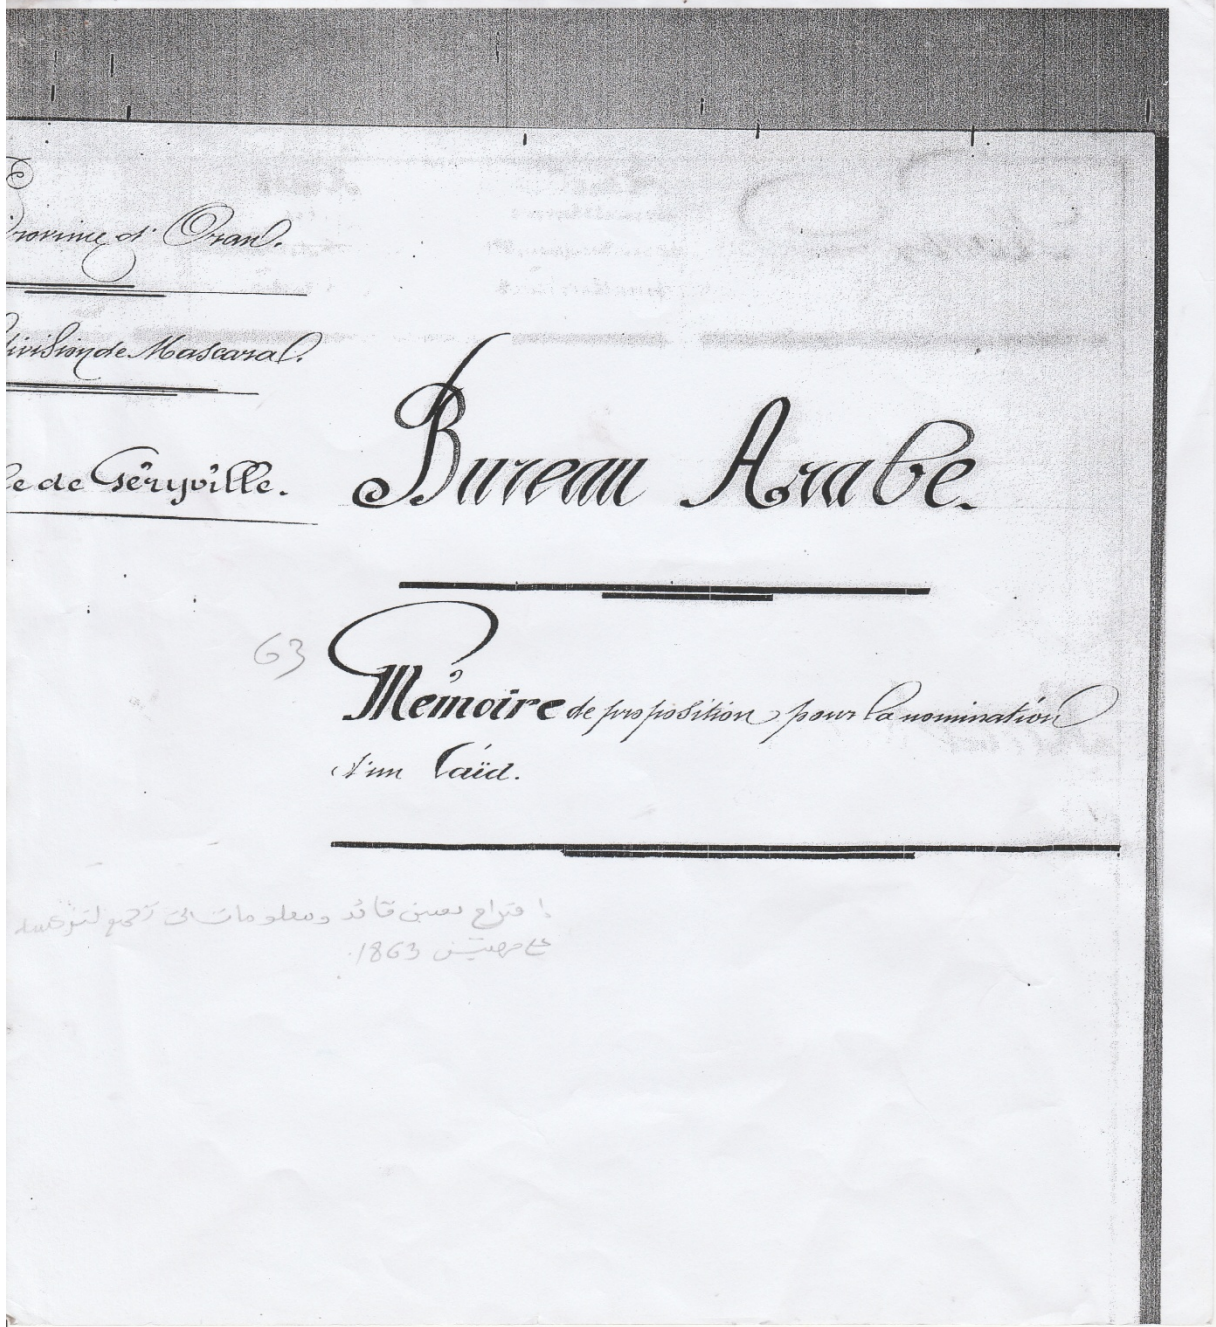 rovince d' Oran.
ivision de Mascara.
le de Géryville.
Bureau Arabe.
63
Mémoire de proposition pour la nomination
d'un Caïd.
اقتراح تعيين قائد ومعلومات
1863.